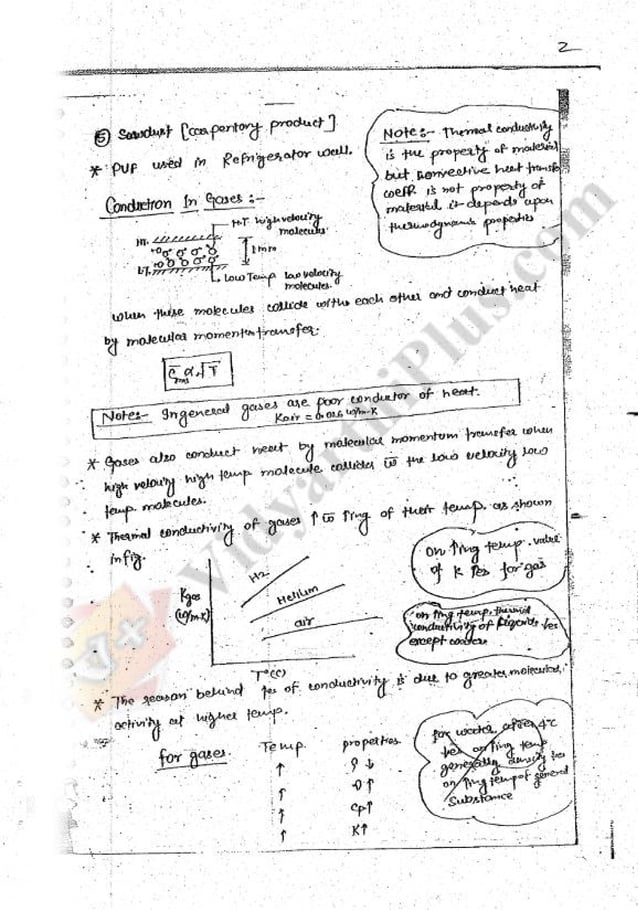 2
⑤ Sawdust [carpentory product]
* PUF used in Refrigerator wall.
Note:- Thermal conductivity
is the property of material
but convective heat transfer
coeff. is not property of
material it depends upon
thermodynamic properties
Conduction In Gases:-
H.T. high velocity
molecules
HT.
1mm
LT.
Low Temp low velocity
molecules.
when these molecules collide with each other and conduct heat
by molecular momentum transfer.
C̅rms α √T
Note:- In general gases are poor conductor of heat.
Kair = 0.026 w/m-K
* Gases also conduct heat by molecular momentum transfer when
high velocity high temp molecule collides w̅ the low velocity low
temp. molecules.
* Thermal conductivity of gases ↑ w̅ ↑ing of their temp. as shown
in fig.
on ↑ing temp. value
of K ↑es for gas
Kgas
(w/m-K)
H2
Helium
air
T°(C)
on ↑ing temp, thermal
conductivity of liquids ↓es
except water
* The reason behind ↑es of conductivity is due to greater molecular
activity at higher temp.
for gases.
Temp. properties.
↑ ρ ↓
↑ υ ↑
↑ Cp↑
↑ K↑
for water, after 4°C
↓es on ↑ing temp
generally density ↓es
on ↑ing temp of general
substance
VidyarthiPlus.com
V+